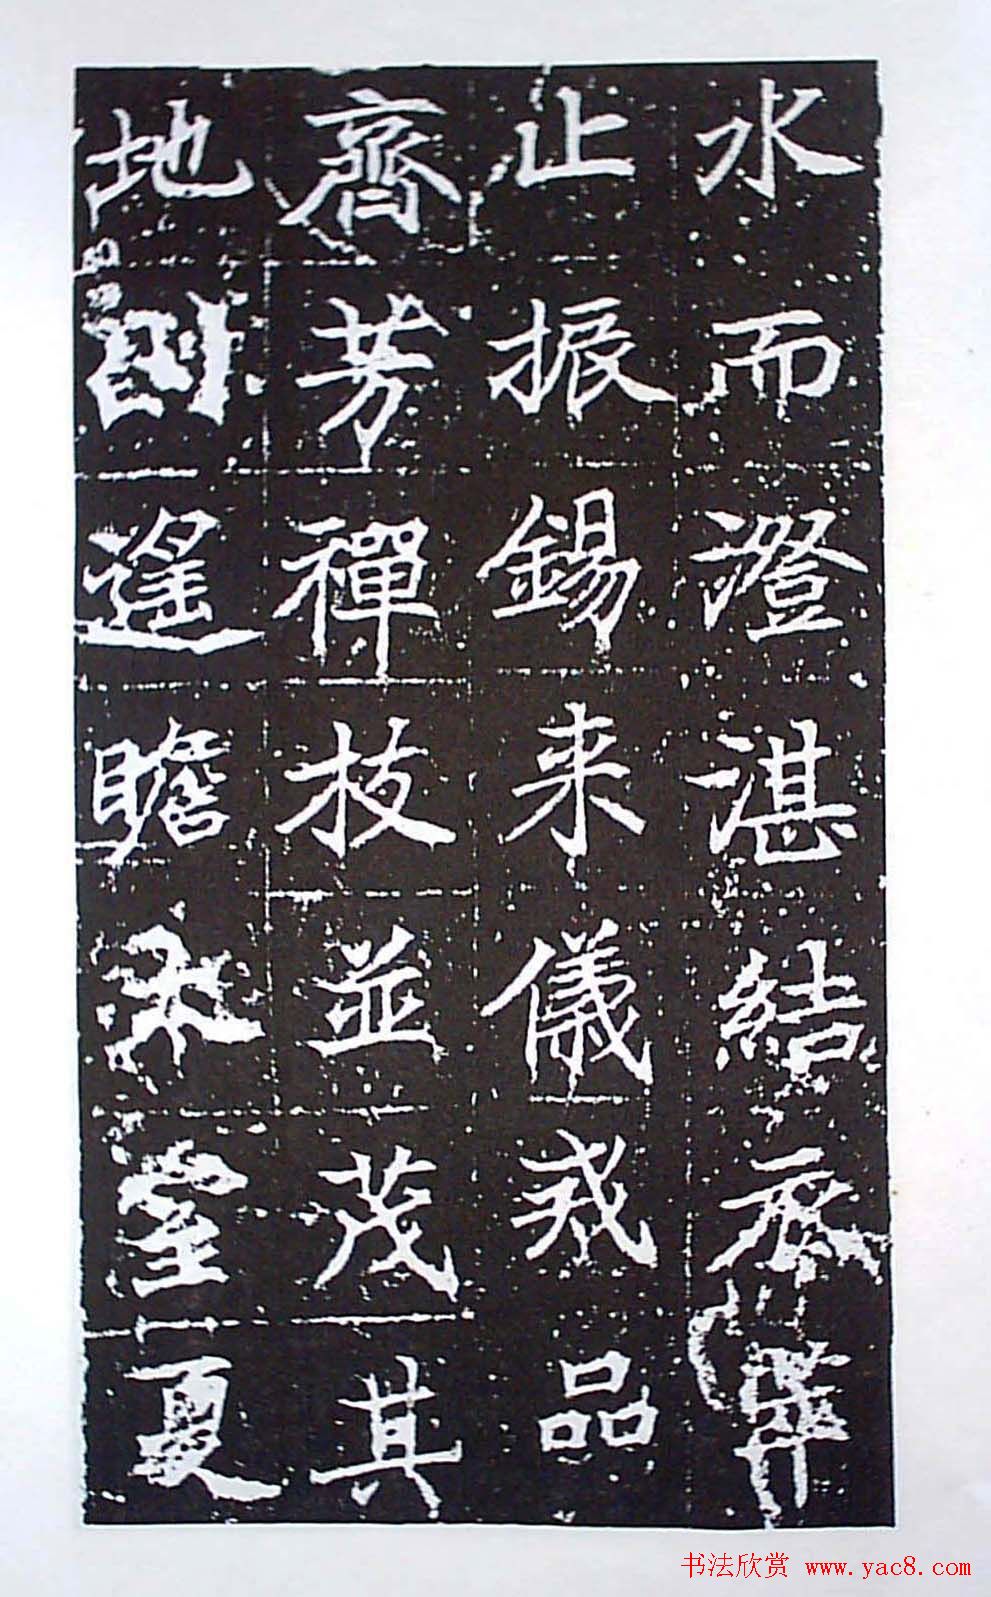 水而澄湛結衣萃
止振錫来儀戒品
齊芳禪枝並茂其
地遥瞻室夏
书法欣赏 www.yac8.com